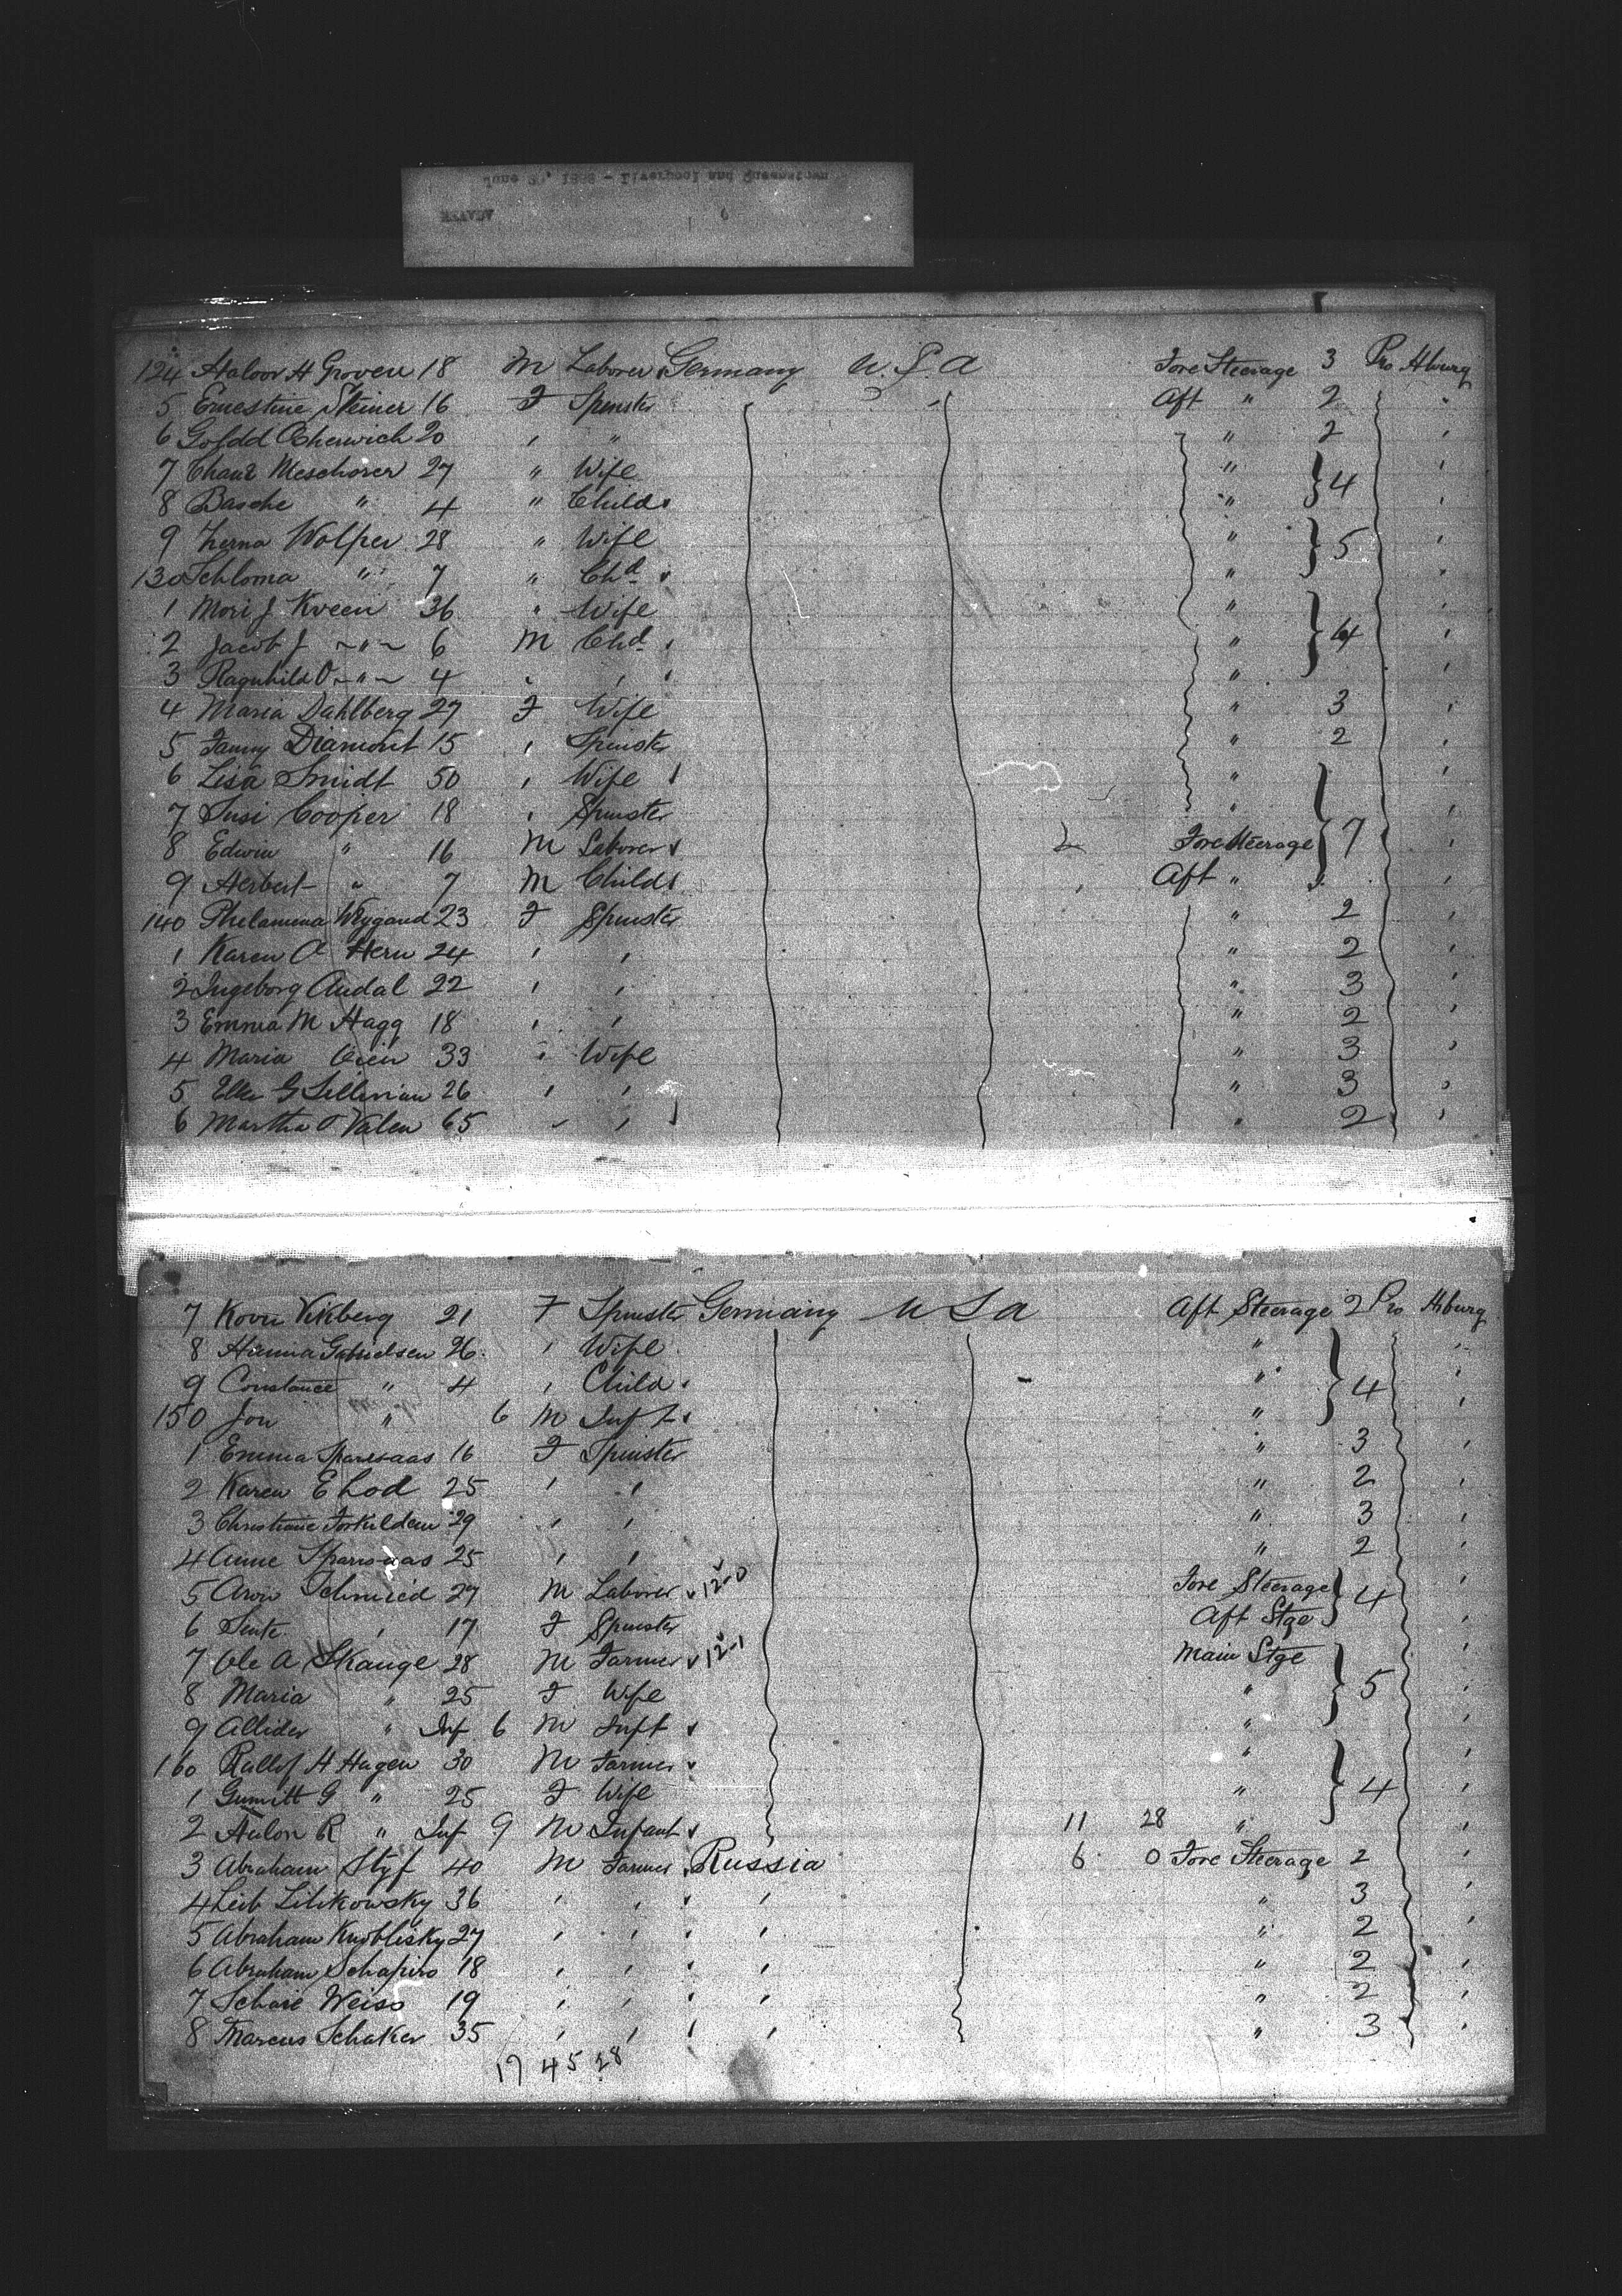 June 1888 - Liverpool and Queenstown
124 Haloor H Groven 18 M Laborer Germany U.S.A Fore Steerage 3 Pro Hburg
5 Ernestine Steiner 16 F Spinster Aft " 2
6 20 " " 2
7 Meschorer 27 " Wife " 4
8 Basche " 4 " Child "
9 Wolper 28 " Wife " 5
130 Schloma " 7 " Chd "
1 Mori J Kveen 36 " Wife " 4
2 Jacob J " 6 M Chd "
3 Ragnhild O " 4 " " "
4 Maria Dahlberg 27 F Wife " 3
5 Fanny Diamont 15 " Spinster " 2
6 Lisa Smidt 50 " Wife "
7 Susi Cooper 18 " Spinster " 7
8 Edwin " 16 M Laborer Fore Steerage
9 Herbert " 7 M Child Aft "
140 Phelamena Weygand 23 F Spinster " 2
1 Karen A Hern 24 " " " 2
2 Ingeborg Audal 22 " " " 3
3 Emma M Hagg 18 " " " 2
4 Maria 33 " Wife " 3
5 G 26 " " " 3
6 Martha O Valen 65 " " " 2
7 Vikberg 21 F Spinster Germany U S A Aft Steerage 2 Pro Hburg
8 Hanna Gabrielsen 26 " Wife "
9 Constance " 4 " Child " 4
150 Jon " 6 M Inft "
1 Emma 16 F Spinster " 3
2 Karen E Lod 25 " " " 2
3 Christiane Torkildsen 29 " " " 3
4 Anne 25 " " " 2
5 Schmied 27 M Laborer 12-0 Fore Steerage 4
6 " 17 F Spinster Aft Stge
7 Ole A Skauge 28 M Farmer 12-1 Main Stge
8 Maria " 25 F Wife " 5
9 " Inf 6 M Inft "
160 H Hagen 30 M Farmer "
1 G " 25 F Wife " 4
2 R " Inf 9 M Infant 11 28 "
3 Abraham Styf 40 M Farmer Russia 6 0 Fore Steerage 2
4 Leib Lilikowsky 36 " " " " 3
5 Abraham Knoblisky 27 " " " " 2
6 Abraham Schapiro 18 " " " " 2
7 Weiss 19 " " " " 2
8 Marcus Schaker 35 " " " " 3
17 45 28